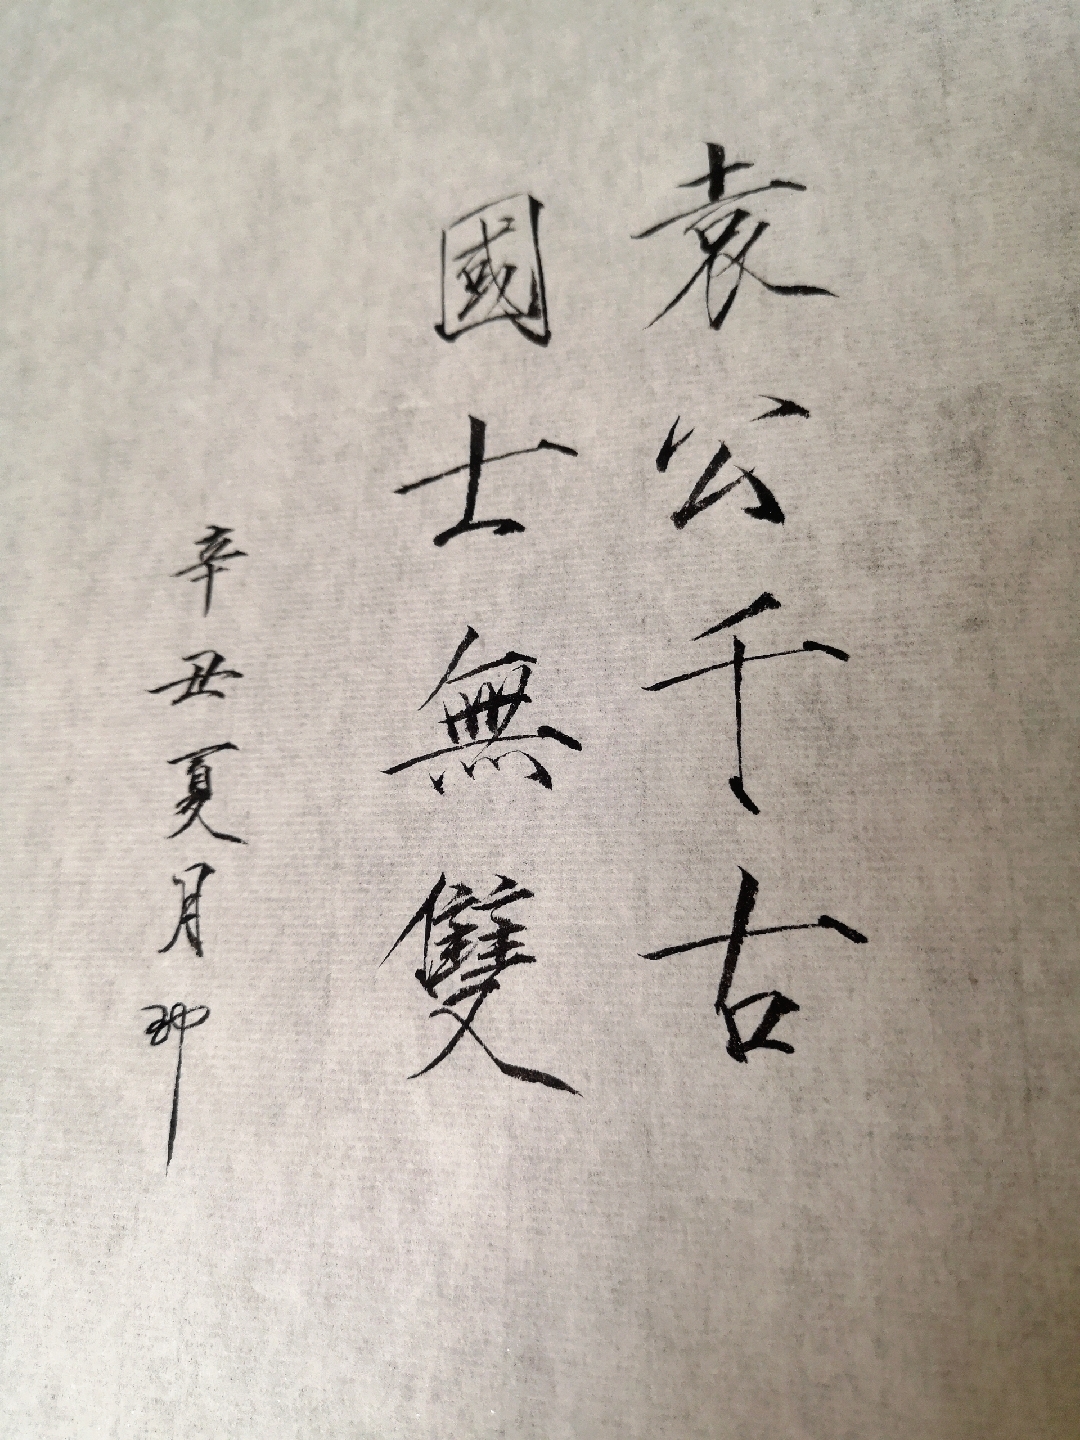 袁公千古
國士無雙
辛丑夏月